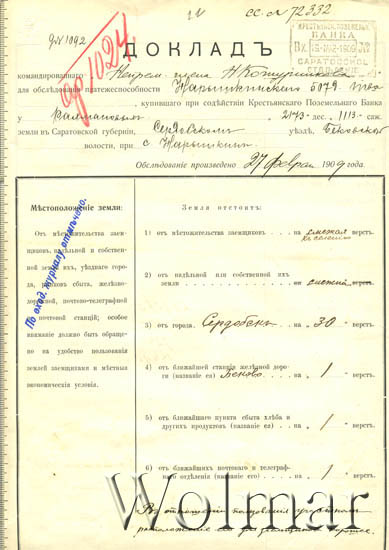 сс. № 72332
№ 1092
98/1024
ДОКЛАДЪ
КРЕСТЬЯНСКІЙ ПОЗЕМЕЛЬНЫЙ
БАНКА
Вх. 1909
САРАТОВСКОЕ
командированнаго Непрем. члена
для обслѣдованія платежеспособности Нарышкинскаго 5079 Т-ва
, купившаго при содѣйствіи Крестьянскаго Поземельнаго Банка
у 2173 дес. 1113 саж.
земли въ Саратовской губерніи, Сердобскомъ уѣздѣ, Бековской
волости, при с. Нарышкинѣ
Обслѣдованіе произведено 27 Февраля 1909 года.
Мѣстоположеніе земли:
Отъ мѣстожительства заемщиковъ, надѣльной и собственной земли ихъ, уѣзднаго города, рынковъ сбыта, желѣзнодорожной, почтово-телеграфной и почтовой станцій; особое вниманіе должно быть обращено на удобство пользованія землей заемщиками и мѣстныя экономическія условія.
По вход. журналу отмѣчено.
Земля отстоитъ:
1) отъ мѣстожительства заемщиковъ . на смежная верстъ.
къ селенію
2) отъ надѣльной или собственной ихъ
земли . . . . . . . . . он смежна верстъ.
3) отъ города Сердобскъ на 30 верстъ.
4) отъ ближайшей станціи желѣзной дороги (названіе ея) Беково . . . на 1 верстъ.
5) отъ ближайшаго пункта сбыта хлѣба и
другихъ продуктовъ (названіе ея) . на 1 верстъ.
6) отъ ближайшихъ почтоваго и телеграфнаго отдѣленія (названіе его) . . на 1 верстъ.
Въ отношеніи пользованія участкомъ
расположеніе его для заемщиковъ хорошее.
Wolmar